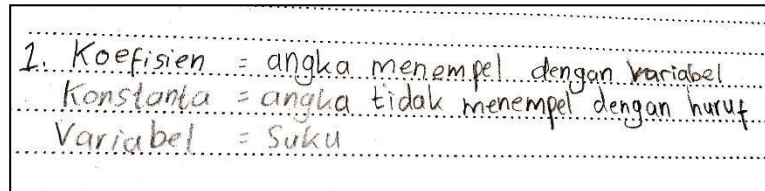 1. Koefisien = angka menempel dengan variabel
Konstanta = angka tidak menempel dengan huruf
Variabel = Suku